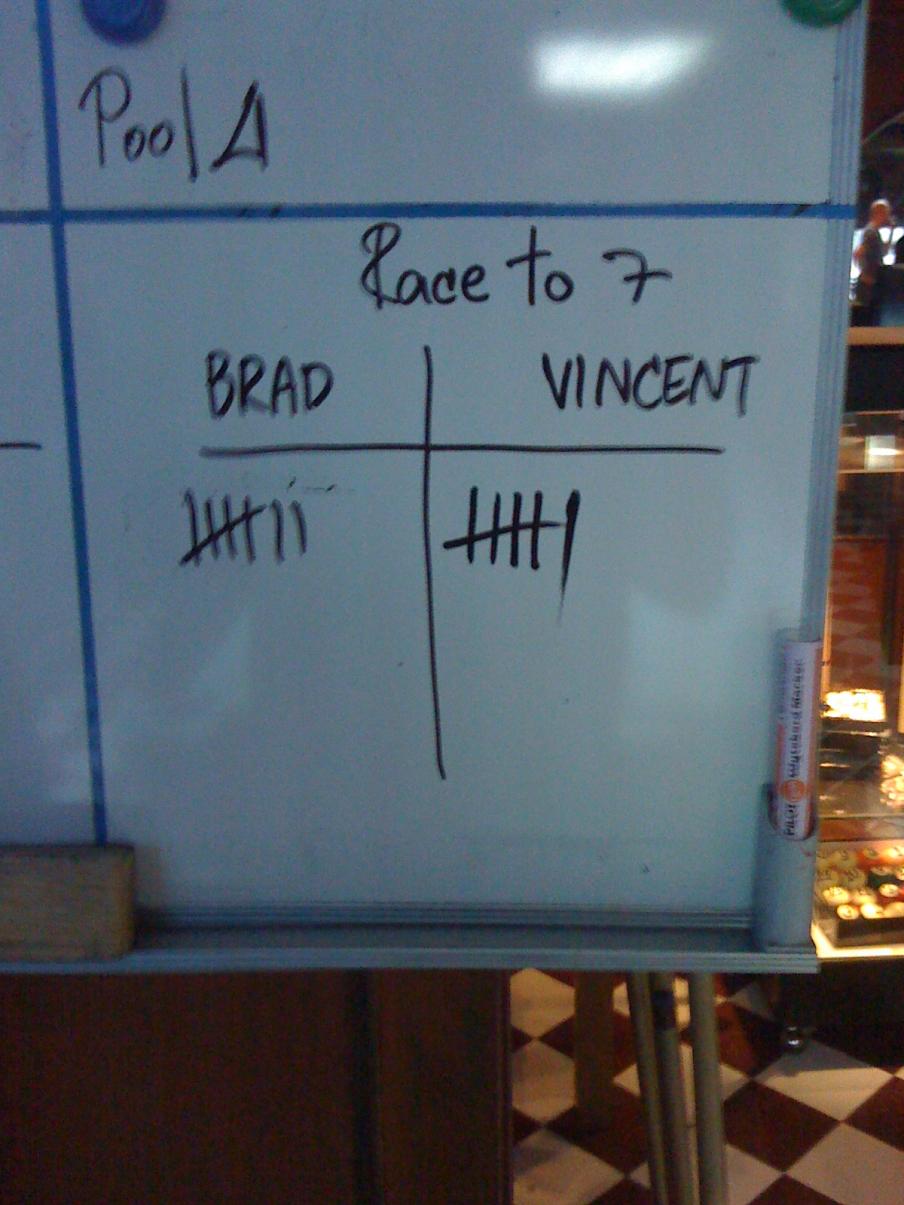 Pool A
Race to 7
BRAD VINCENT
PILOT Whiteboard Marker